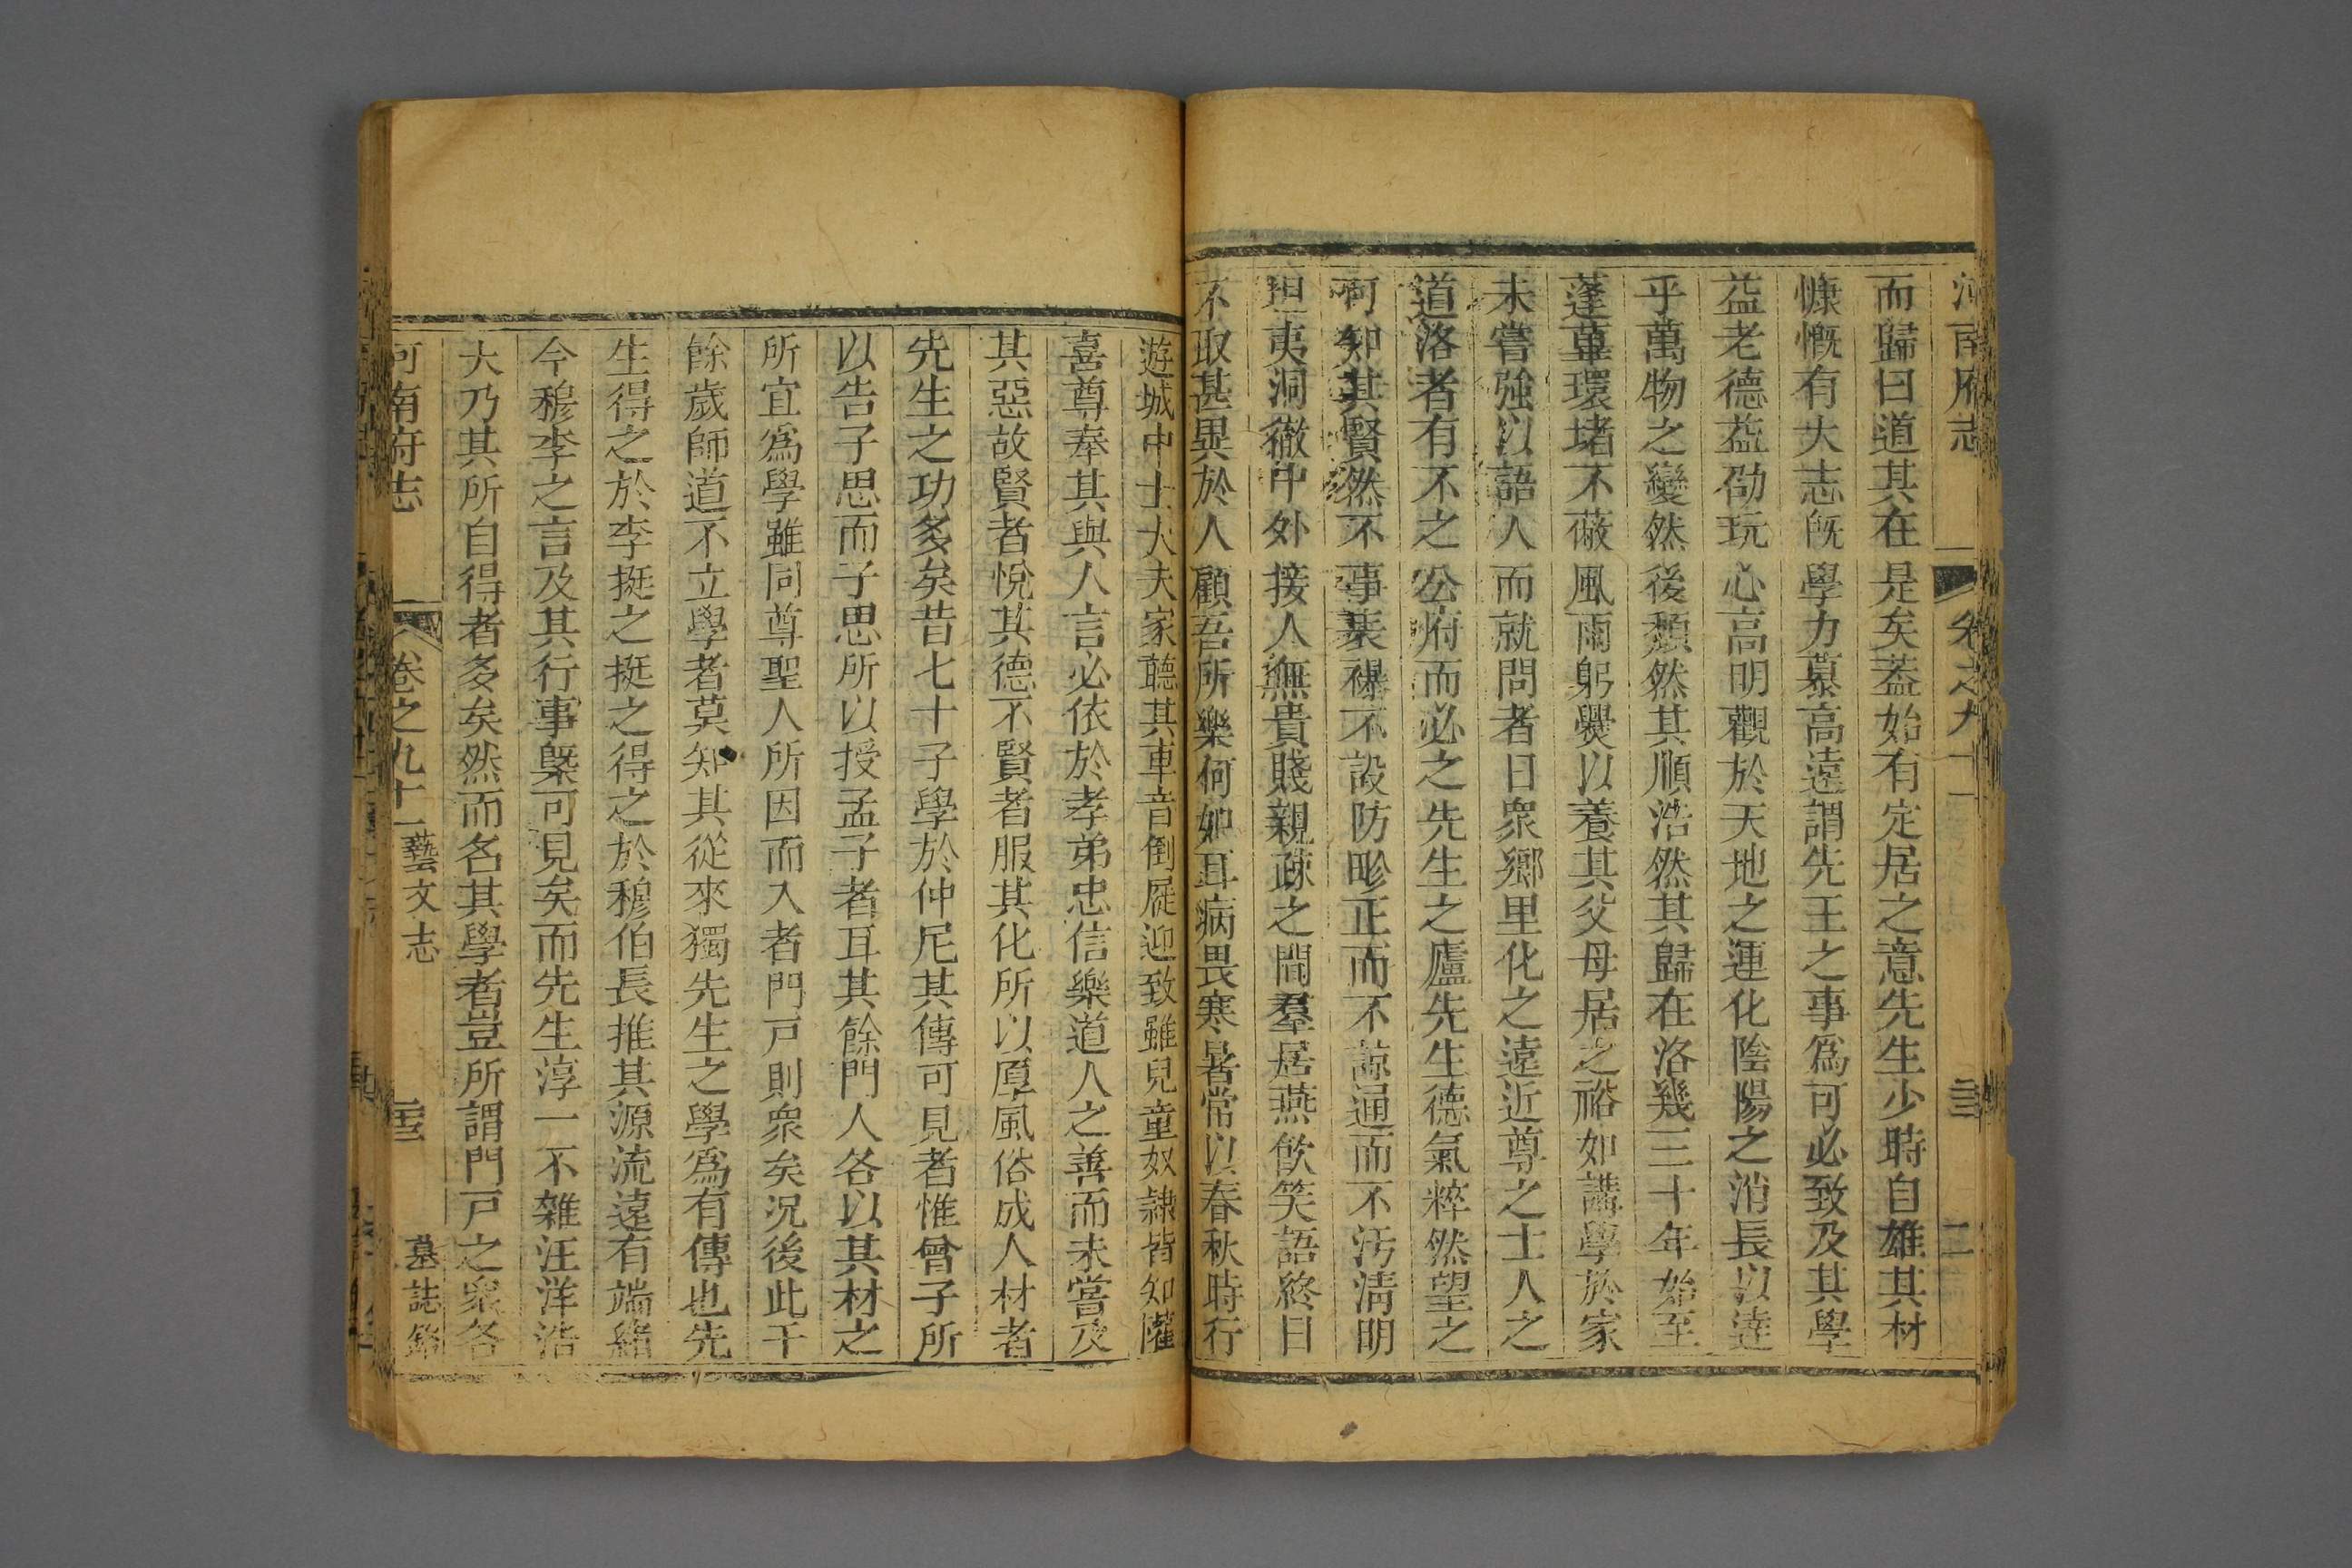 河南府志 卷之九十一 二
而歸曰道其在是矣葢始有定居之意先生少時自雄其材
慷慨有大志旣學力慕高遠謂先王之事爲可必致及其學
益老德益劭玩心高明觀於天地之運化陰陽之消長以達
乎萬物之變然後頽然其順浩然其歸在洛幾三十年始至
蓬蓽環堵不蔽風雨躬爨以養其父母居之裕如講學於家
未嘗強以語人而就問者日衆鄉里化之遠近尊之士人之
道洛者有不之公府而必之先生之廬先生德氣粹然望之
可知其賢然不事表襮不設防畛正而不諒通而不汚淸明
坦夷洞徹中外接人無貴賤親疎之間羣居燕飮笑語終日
不取甚異於人顧吾所樂何如耳病畏寒暑常以春秋時行
遊城中士大夫家聽其車音倒屣迎致雖兒童奴隸皆知懽
喜尊奉其與人言必依於孝弟忠信樂道人之善而未嘗及
其惡故賢者悅其德不賢者服其化所以厚風俗成人材者
先生之功多矣昔七十子學於仲尼其傳可見者惟曾子所
以告子思而子思所以授孟子者耳其餘門人各以其材之
所宜爲學雖同尊聖人所因而入者門戸則衆矣況後此千
餘歲師道不立學者莫知其從來獨先生之學爲有傳也先
生得之於李挺之挺之得之於穆伯長推其源流遠有端緒
今穆李之言及其行事槩可見矣而先生淳一不雜汪洋浩
大乃其所自得者多矣然而名其學者豈所謂門戸之衆各
河南府志 卷之九十一 藝文志 墓誌銘